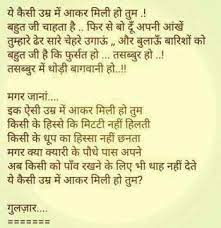 ये कैसी उम्र में आकर मिली हो तुम .!
बहुत जी चाहता है .. फिर से बो दूँ अपनी आंखें
तुम्हारे ढेर सारे चेहरे उगाऊं ,, और बुलाऊँ बारिशों को
बहुत जी है कि फुर्सत हो ... तसब्बुर हो ..!
तसब्बुर में थोड़ी बागवानी हो..!!
मगर जानां....
इक ऐसी उम्र में आकर मिली हो तुम
किसी के हिस्से कि मिटटी नहीं हिलती
किसी के धूप का हिस्सा नहीं छनता
मगर क्या क्यारी के पौधे पास अपने
अब किसी को पाँव रखने के लिए भी थाह नहीं देते
ये कैसी उम्र में आकर मिली हो तुम?
गुलज़ार....
=======